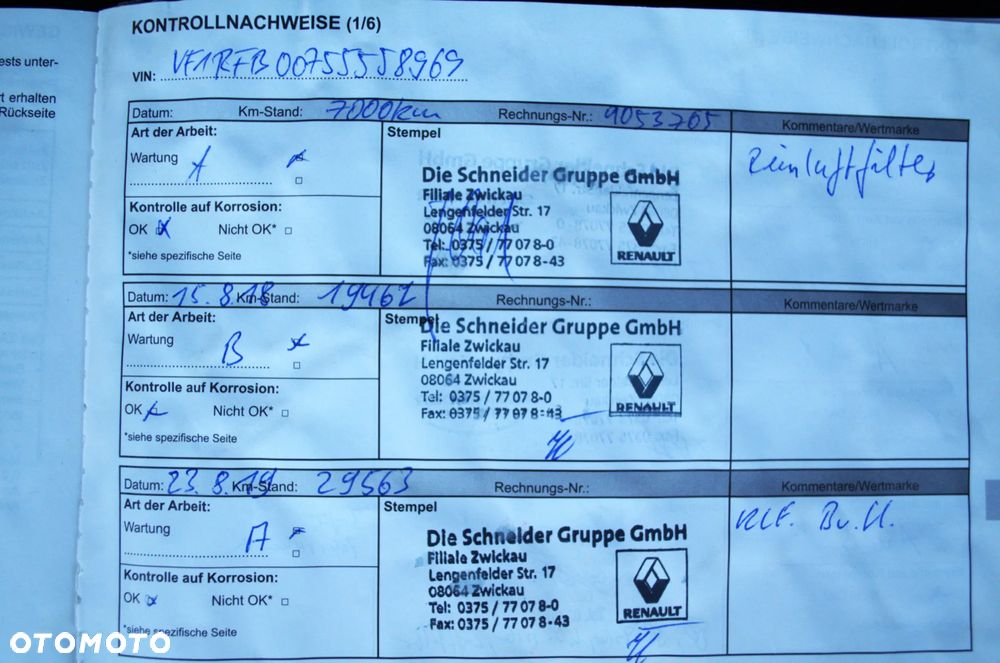 ests unter-
t erhalten
Rückseite
KONTROLLNACHWEISE (1/6)
VIN: VF1RFB00755558969
Datum: Km-Stand: 7000km Rechnungs-Nr.: 9053765 Kommentare/Wertmarke
Art der Arbeit:
Wartung A
Kontrolle auf Korrosion:
OK Nicht OK*
*siehe spezifische Seite
Stempel
Die Schneider Gruppe GmbH
Filiale Zwickau
Lengenfelder Str. 17
08064 Zwickau
Tel: 0375 / 77 07 8-0
Fax: 0375 / 77 07 8-43
RENAULT
Reinluftfilter
Datum: 15.8.18 Km-Stand: 19461 Rechnungs-Nr.: Kommentare/Wertmarke
Art der Arbeit:
Wartung B
Kontrolle auf Korrosion:
OK Nicht OK*
*siehe spezifische Seite
Stempel
Die Schneider Gruppe GmbH
Filiale Zwickau
Lengenfelder Str. 17
08064 Zwickau
Tel: 0375 / 77 07 8-0
Fax: 0375 / 77 07 8-43
RENAULT
Datum: 23.8.19 Km-Stand: 29563 Rechnungs-Nr.: Kommentare/Wertmarke
Art der Arbeit:
Wartung A
Kontrolle auf Korrosion:
OK Nicht OK*
*siehe spezifische Seite
Stempel
Die Schneider Gruppe GmbH
Filiale Zwickau
Lengenfelder Str. 17
08064 Zwickau
Tel: 0375 / 77 07 8-0
Fax: 0375 / 77 07 8-43
RENAULT
OTOMOTO